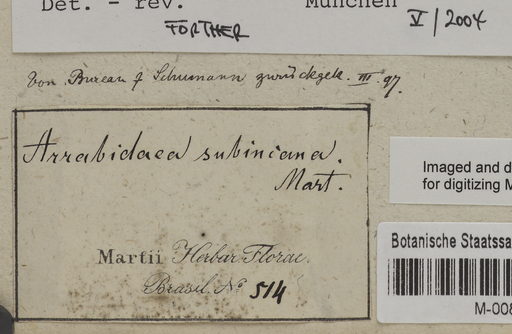 Det. - rev.
München
FÖRTHER
V/2004
Von Bureau & Schumann zurückgek. III. 97.
Arrabidaea subincana.
Mart.
Martii Herbar. Florae
Brasil. No 514
Imaged and d
for digitizing M
Botanische Staatssa
M-008